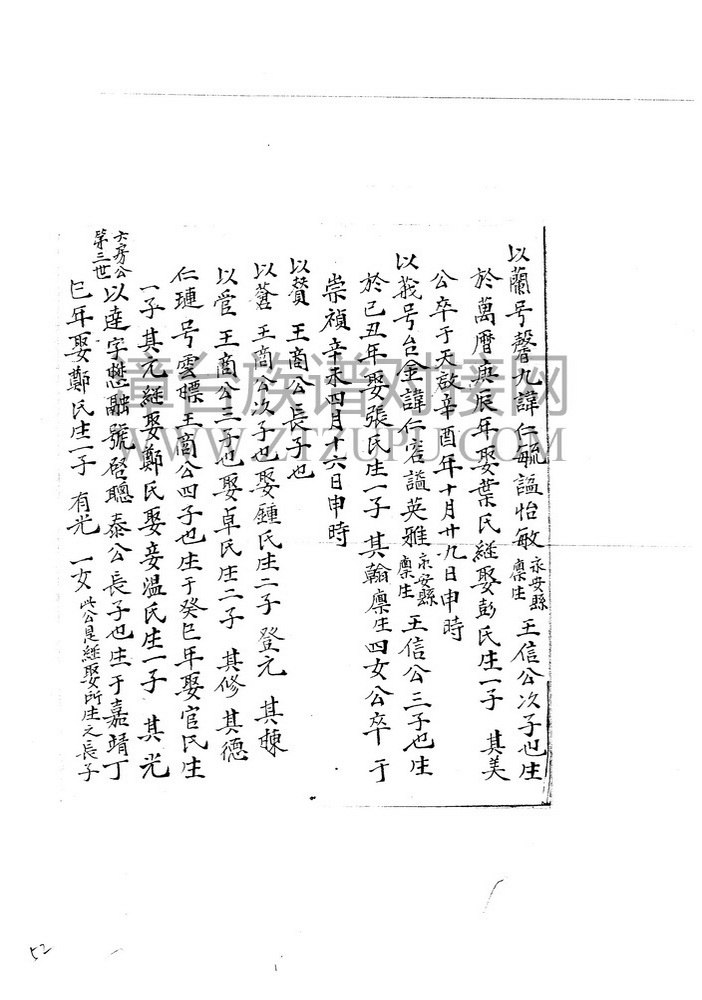 以蘭号馨九諱仁毓謚怡敏永安縣廪生王信公次子也生
於萬曆庚辰年娶葉氏継娶彭氏生一子 其美
公卒于天啟辛酉年十月廿九日申時
以莪号台金諱仁宻謚英雅永安縣廪生王信公三子也生
於己丑年娶張氏生一子 其翰廪生四女公卒于
崇禎辛未四月十六日申時
以贊 王商公長子也
以蒼 王商公次子也娶鍾氏生二子 登元 其
以萱 王商公三子也娶卓氏生二子 其修 其德
仁璉号雲 王商公四子也生于癸巳年娶官氏生
一子 其元継娶鄭氏娶妾温氏生一子 其光
六房公
第三世
以達字懋融號啓聰 泰公長子也生于嘉靖丁
巳年娶鄭氏生一子 有光 一女 此公是継娶所生之長子
章台族谱对接网
WWW.ZTZUPU.COM
52